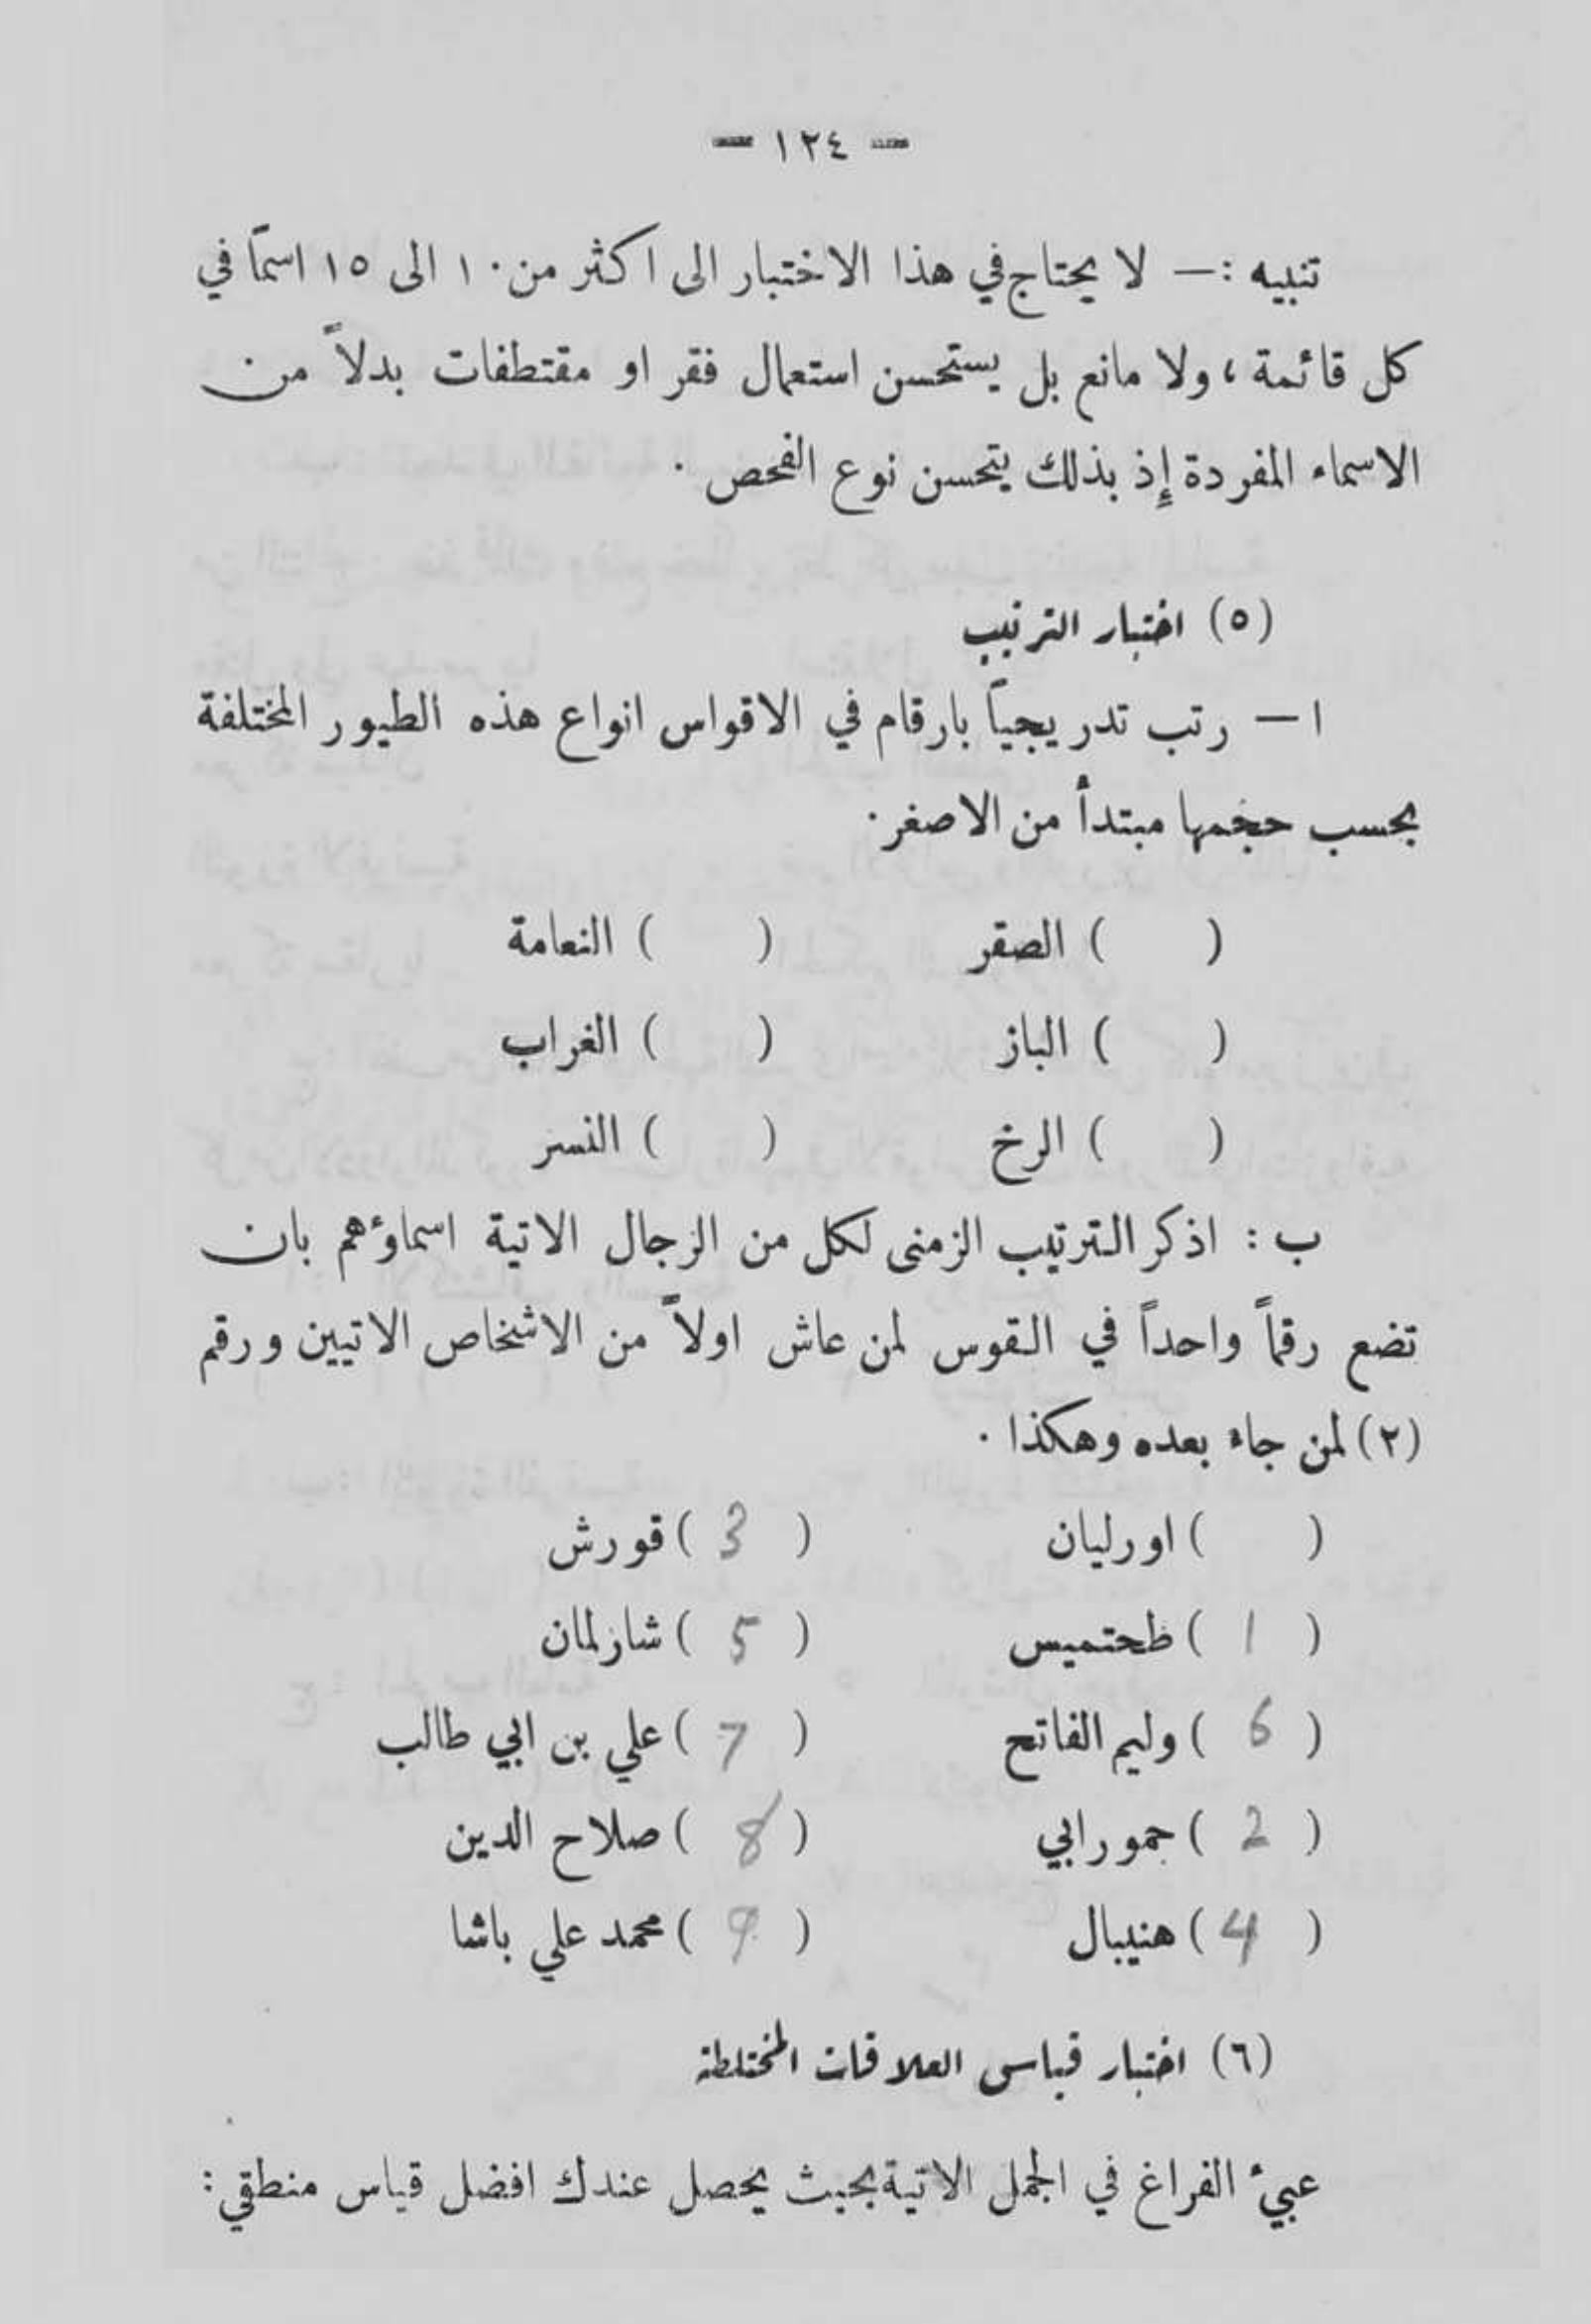 — ١٢٤ —
تنبيه :— لا يحتاج في هذا الاختبار الى اكثر من ١٠ الى ١٥ اسمًا في
كل قائمة ، ولا مانع بل يستحسن استعمال فقر او مقتطفات بدلاً من
الاسماء المفردة إِذ بذلك يتحسن نوع الفحص .
(٥) اختبار الترتيب
ا — رتب تدريجياً بارقام في الاقواس انواع هذه الطيور المختلفة
بحسب حجمها مبتدأ من الاصغر .
( ) الصقر ( ) النعامة
( ) الباز ( ) الغراب
( ) الرخ ( ) النسر
ب : اذكر الترتيب الزمنى لكل من الرجال الاتية اسماؤهم بان
تضع رقماً واحداً في القوس لمن عاش اولاً من الاشخاص الاتيين ورقم
(٢) لمن جاء بعده وهكذا .
( ) اورليان ( 3 ) قورش
( 1 ) ظحتميس ( 5 ) شارلمان
( 6 ) وليم الفاتح ( 7 ) علي بن ابي طالب
( 2 ) حمورابي ( 8 ) صلاح الدين
( 4 ) هنيبال ( 9 ) محمد علي باشا
(٦) اختبار قياس العلاقات المختلطة
عبيء الفراغ في الجمل الاتية بحيث يحصل عندك افضل قياس منطقي :